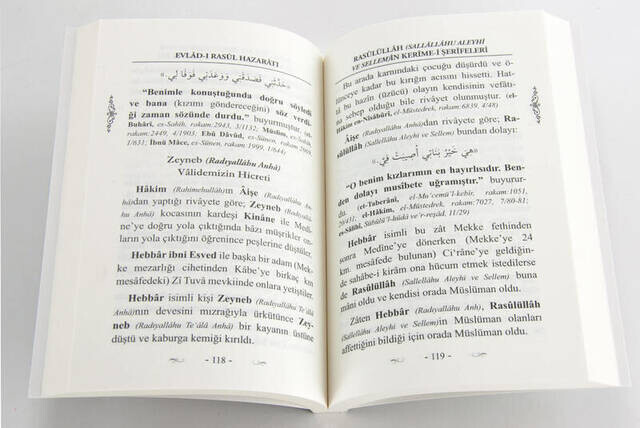 EVLÂD-I RASÛL HAZARÂTI
«حَدَّثَنِي فَصَدَقَنِي وَوَعَدَنِي فَوَفَا لِي.»
“Benimle konuştuğunda doğru söyledi
ve bana (kızımı göndereceğini) söz verdi,
ği zaman sözünde durdu.” buyurmuştur.
Buhârî, es-Sahîh, rakam:2943, 3/1132; Müslim, es-Sahîh,
rakam:2449, 4/1903; Ebû Dâvûd, es-Sünen, rakam:2069,
1/631; İbnü Mâce, es-Sünen, rakam:1999, 1/644)
Zeyneb (Radıyallâhu Anhâ)
Vâlidemizin Hicreti
Hâkim (Rahimehullâh)ın Âişe (Radıyallâhu An-
hâ)dan yaptığı rivâyete göre; Zeyneb (Radıyallâ-
hu Anhâ) kocasının kardeşi Kinâne ile Medî-
ne’ye doğru yola çıktığında bâzı müşrikler on-
ların yola çıktığını öğrenince peşlerine düştüler.
Hebbâr ibni Esved ile başka bir adam (Mek-
ke mezarlığı cihetinden Kâbe’ye birkaç km
mesâfedeki) Zî Tuvâ mevkiinde onlara yetiştiler.
Hebbâr isimli kişi Zeyneb (Radıyallâhu Te‘âlâ
Anhâ)nın devesini mızrağıyla ürkütünce Zey-
neb (Radıyallâhu Te‘âlâ Anhâ) bir kayanın üstüne
düştü ve kaburga kemiği kırıldı.
- 118 -
RASÛLÜLLÂH (SALLÂLLÂHU ALEYHİ
VE SELLEM)İN KERÎME-İ ŞERÎFELERİ
Bu arada karnındaki çocuğu düşürdü ve ö-
lünceye kadar bu kırığın acısını hissetti. Hat-
tâ bu hazîn (üzücü) olayın kendisinin vefâtı-
na sebep olduğu bile rivâyet olunmuştur. (el-
Hâkim en-Nîsâbûrî, el-Müstedrek, rakam:6839, 4/48)
Âişe (Radıyallâhu Anhâ)dan rivâyete göre; Ra-
sûlüllâh (Sallellâhu Aleyhi ve Sellem) bundan dolayı:
«هِيَ خَيْرُ بَنَاتِي أُصِيبَتْ فِيَّ.»
“O benim kızlarımın en hayırlısıdır. Ben-
den dolayı musibete uğramıştır.” buyurur-
du. (et-Taberânî, el-Mu‘cemü’l-kebîr, rakam:1051,
20/431; el-Hâkim, el-Müstedrek, rakam:7027, 7/80-81;
es-Sâlihî, Sübülü’l-hüdâ ve’r-reşâd, 11/29)
Hebbâr isimli bu zât Mekke fethinden
sonra Medîne’ye dönerken (Mekke’ye 24
km. mesâfede bulunan) Ci‘râne’ye geldiğin-
de sahâbe-i kirâm ona hücum etmek istedilerse
de Rasûlüllâh (Sallellâhu Aleyhi ve Sellem) buna
mâni oldu ve kendisi orada Müslüman oldu.
Zâten Hebbâr (Radıyallâhu Anh), Rasûlüllâh
(Sallellâhu Aleyhi ve Sellem)in Müslüman olanları
affettiğini bildiği için orada Müslüman oldu.
- 119 -